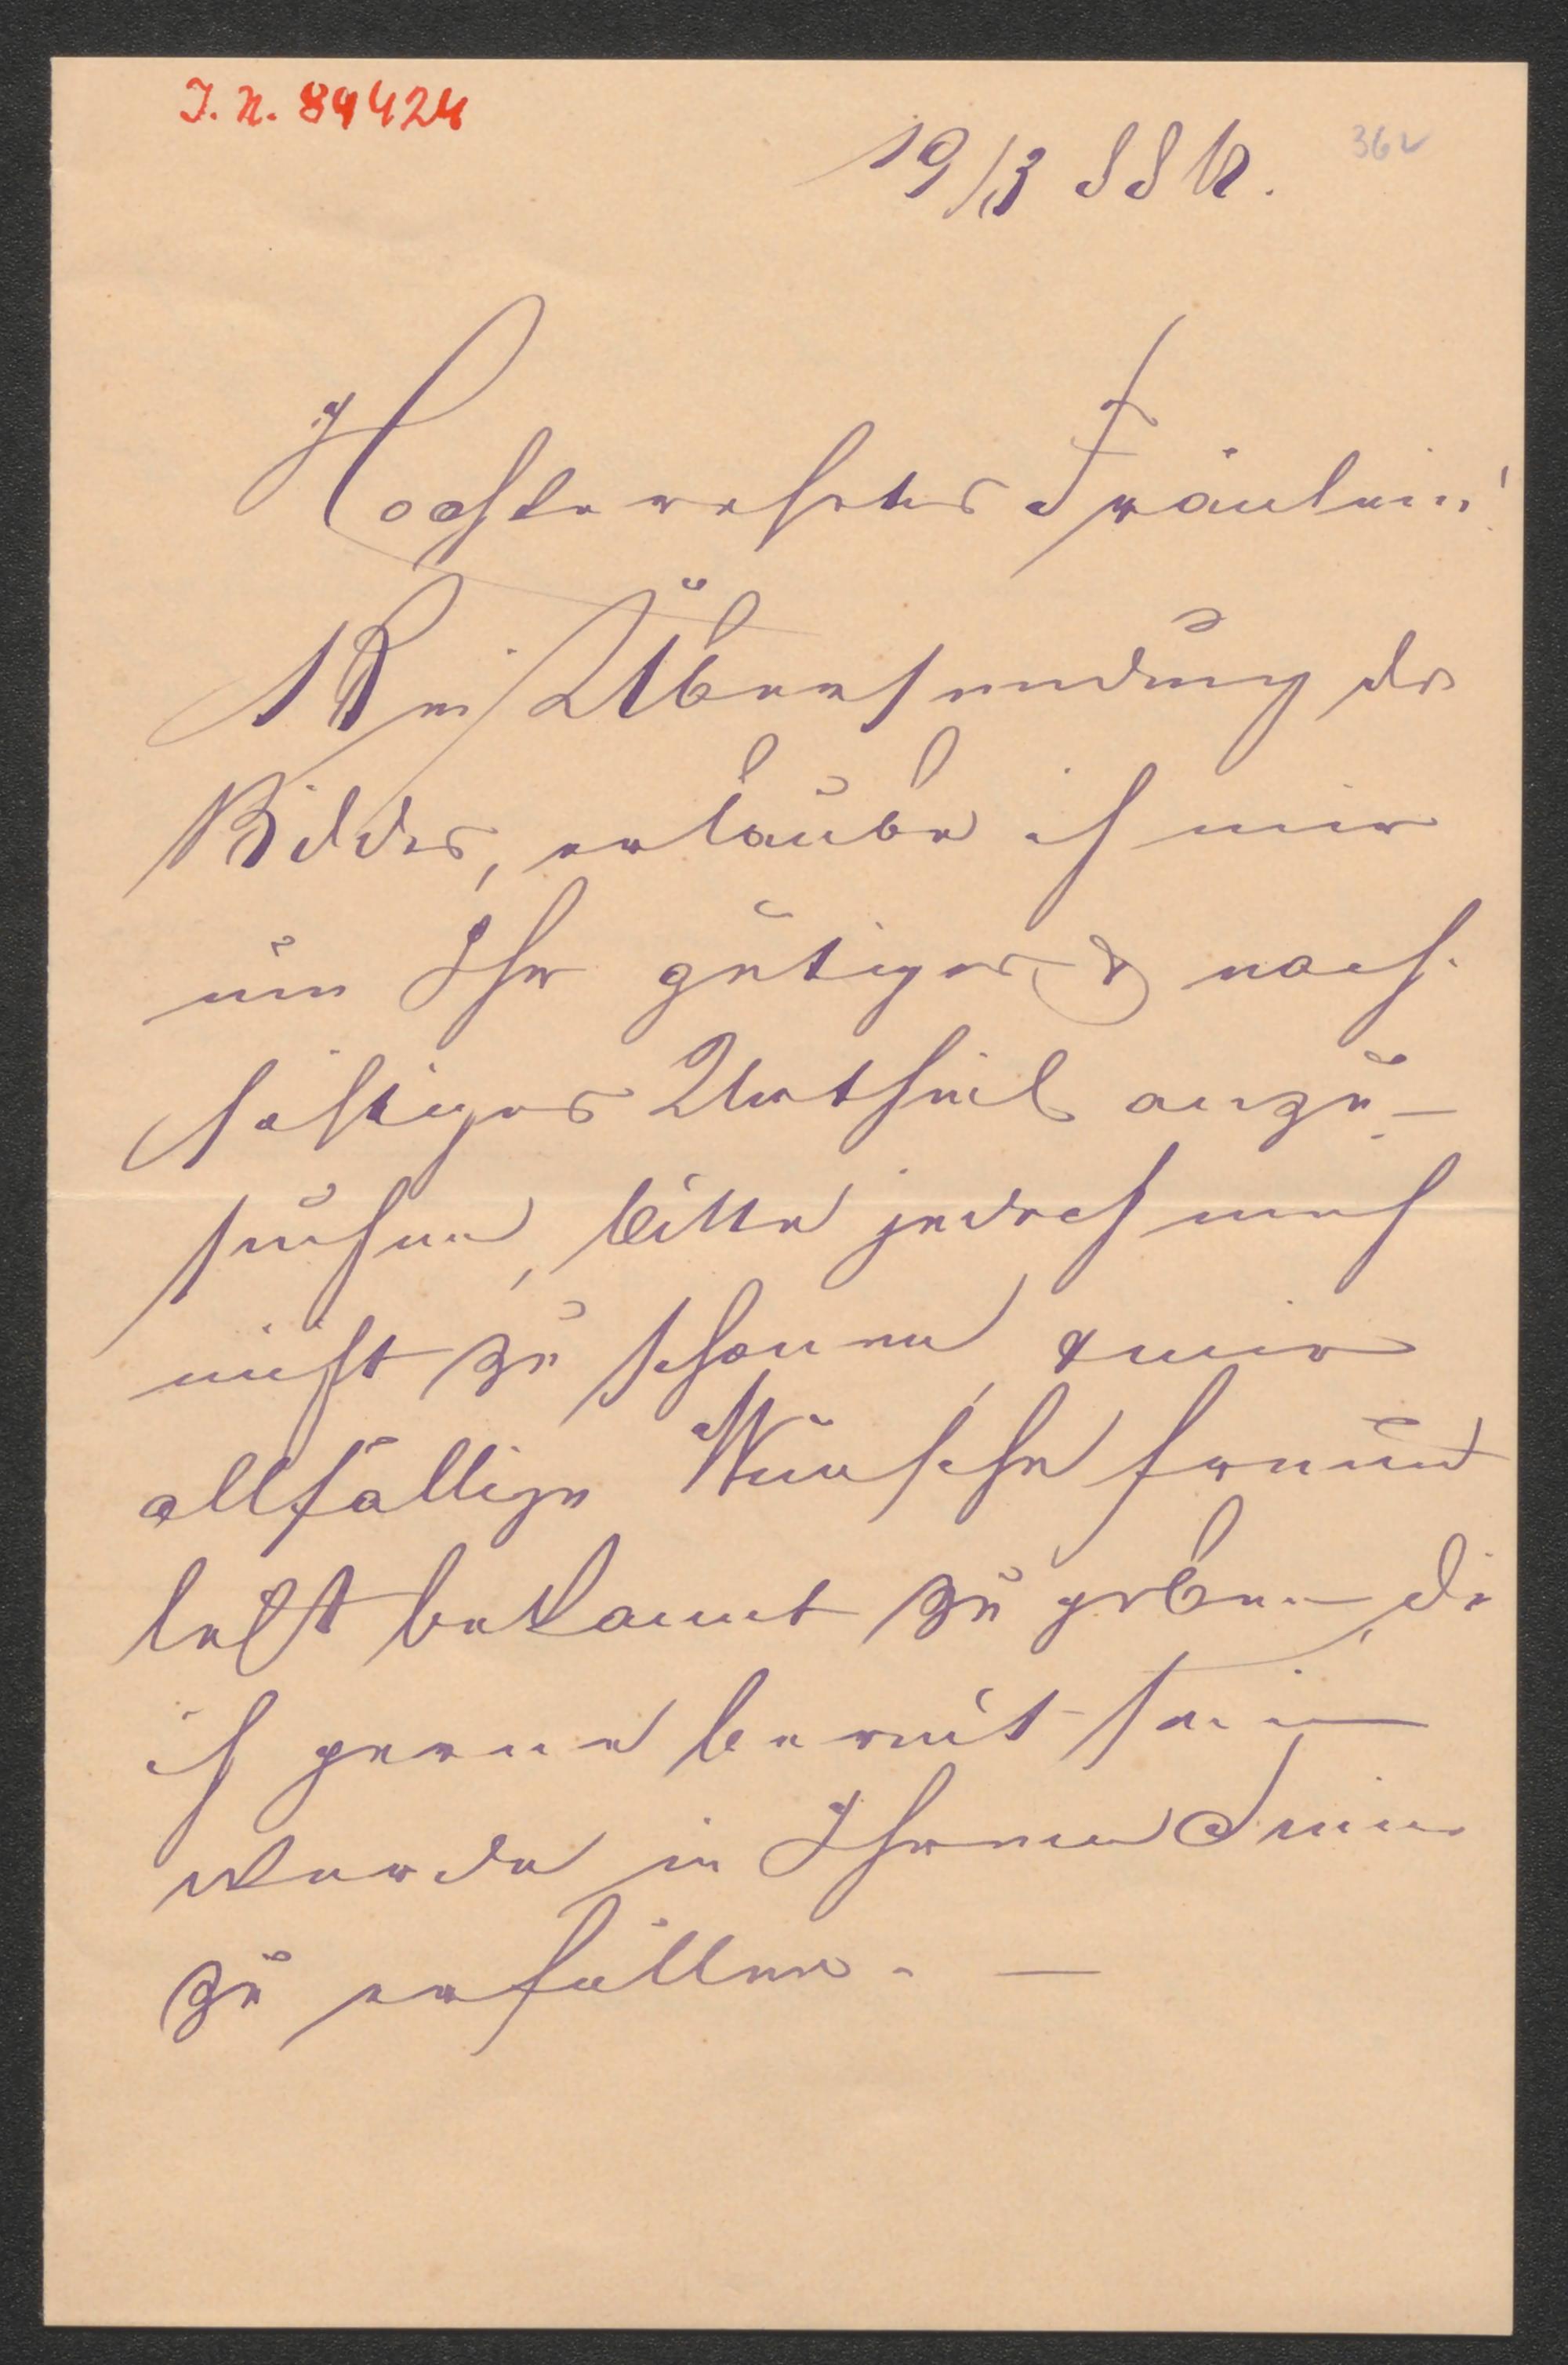 J. N. 89424
19/3 88 W.
36 v
Hochverehrtes Fräulein!
Bei Übersendung des
Bildes, erlaube ich mir
um Ihr gütiges & nach-
sichtiges Urtheil anzu-
suchen, bitte jedoch mich
nicht zu schonen, & mir
allfällige Wünsche freund
lichst bekannt zu geben, die
ich gerne bereit sein
werde in Ihrem Sinne
zu erfüllen. —